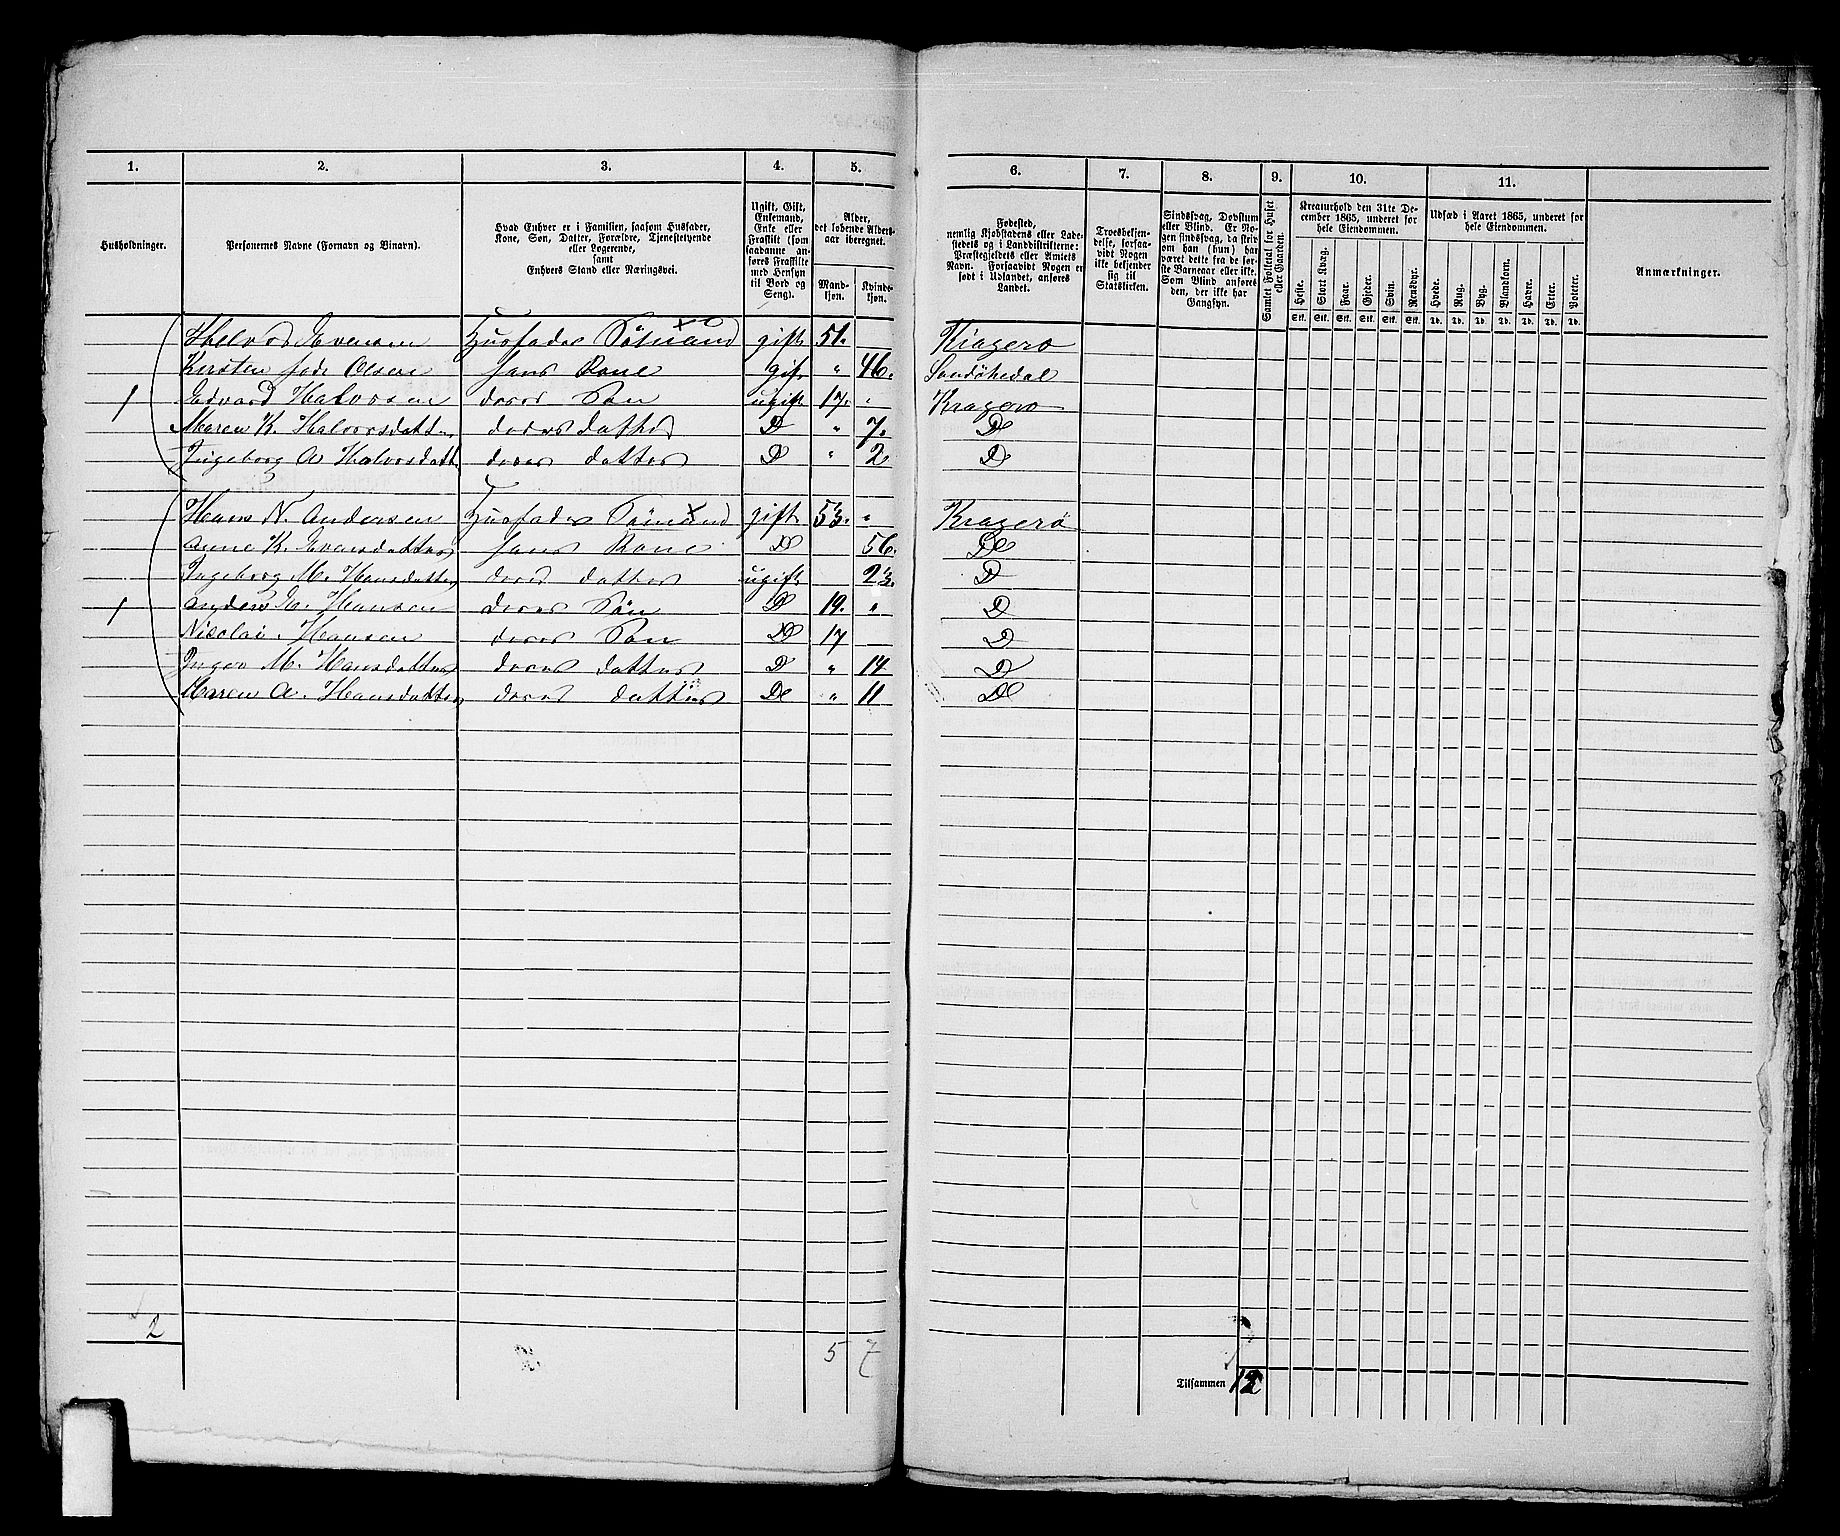 1. 2. 3. 4. 5. 6. 7. 8. 9. 10. 11.
Husholdninger.
Personernes Navne (Fornavn og Binavn).
Hvad Enhver er i Familien, saasom Husfader,
Kone, Søn, Datter, Forældre, Tjenestetyende
eller Logerende,
samt
Enhvers Stand eller Næringsvei.
Ugift, Gift,
Enkemand,
Enke eller
Fraskilt (som
saadanne an-
føres Fraskilte
med Hensyn
til Bord og
Seng).
Alder,
det løbende Alders-
aar iberegnet.
Mand-
kjøn.
Kvinde-
kjøn.
Fødested,
nemlig Kjøbstadens eller Lade-
stedets og i Landdistrikterne:
Præstegjeldets eller Amtets
Navn. Forsaavidt Nogen er
født i Udlandet, anføres
Landet.
Troesbekjen-
delse, forsaa-
vidt Nogen
ikke bekjender
sig til
Statskirken.
Sindssvag, Døvstum
eller Blind. Er No-
gen sindssvag, da skriv
om han (hun) har
været dette fra de før-
ste Barneaar eller ikke.
Som Blind anføres
den, der ikke har
Gangsyn.
Samlet Folketal for Huset
eller Gaarden.
Kreaturhold den 31te De-
cember 1865, underet for
hele Eiendommen.
Heste. Stort Kvæg. Faar. Gjeder. Svin. Rensdyr.
Stk. Stk. Stk. Stk. Stk. Stk.
Udsæd i Aaret 1865, underet for
hele Eiendommen.
Hvede. Rug. Byg. Blandkorn. Havre. Erter. Poteter.
Td. Td. Td. Td. Td. Td. Td.
Anmærkninger.
Halvor Evensen Husfader Sømand gift 51. Kragerø
Kirstenføde Olsen hans Kone gif. " 46. Sandøkedal
1 Edvard Halvorsen deres Søn ugift 17. " Kragerø
Maren K. Halvorsdatter deres datter D " 7. D
Ingeborg A Halvorsdatt deres datter D " 2 D
Hans N. Andersen Husfader Sømand gift 53. " Kragerø
Anne K. Evensdatter hans Kone D 56. D
Ingeborg M. Hansdatter deres datter ugift 23. D
1 Anders H. Hansen deres Søn D 19. " D
Nicolai Hansen deres Søn D 17 D
Inger M. Hansdatter deres datter D " 14 D
Maren A. Hansdatter deres datter D " 11 D
2 5 7
Tilsammen 12